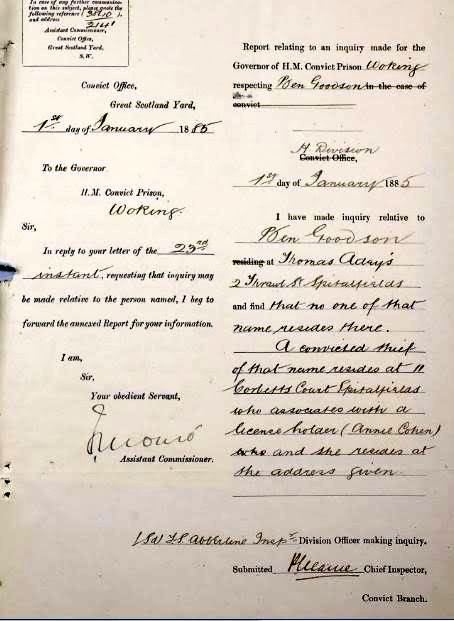 In case of any further communica-
tion on this subject, please quote the
following reference (
and address
Assistant Commissioner,
Convict Office,
Great Scotland Yard,
S.W.
Convict Office,
Great Scotland Yard,
1st day of January 1885
To the Governor
H.M. Convict Prison,
Woking.
Sir,
In reply to your letter of the 23rd
instant, requesting that inquiry may
be made relative to the person named, I beg to
forward the annexed Report for your information.
I am,
Sir,
Your obedient Servant,
Assistant Commissioner.
Report relating to an inquiry made for the
Governor of H.M. Convict Prison Woking
respecting Ben Goodson in the case of
convict
H Division
Convict Office,
1st day of January 1885
I have made inquiry relative to
Ben Goodson
residing at Thomas
2 Thrawl St Spitalfields
and find that no one of that
name resides there.
A convicted thief
of that name resides at 11
Corbetts Court Spitalfields
who associates with a
licence holder (Annie Cohen)
who and she resides at
the address given
(Sd) F G Abberline Inspr Division Officer making inquiry.
Submitted Chief Inspector,
Convict Branch.